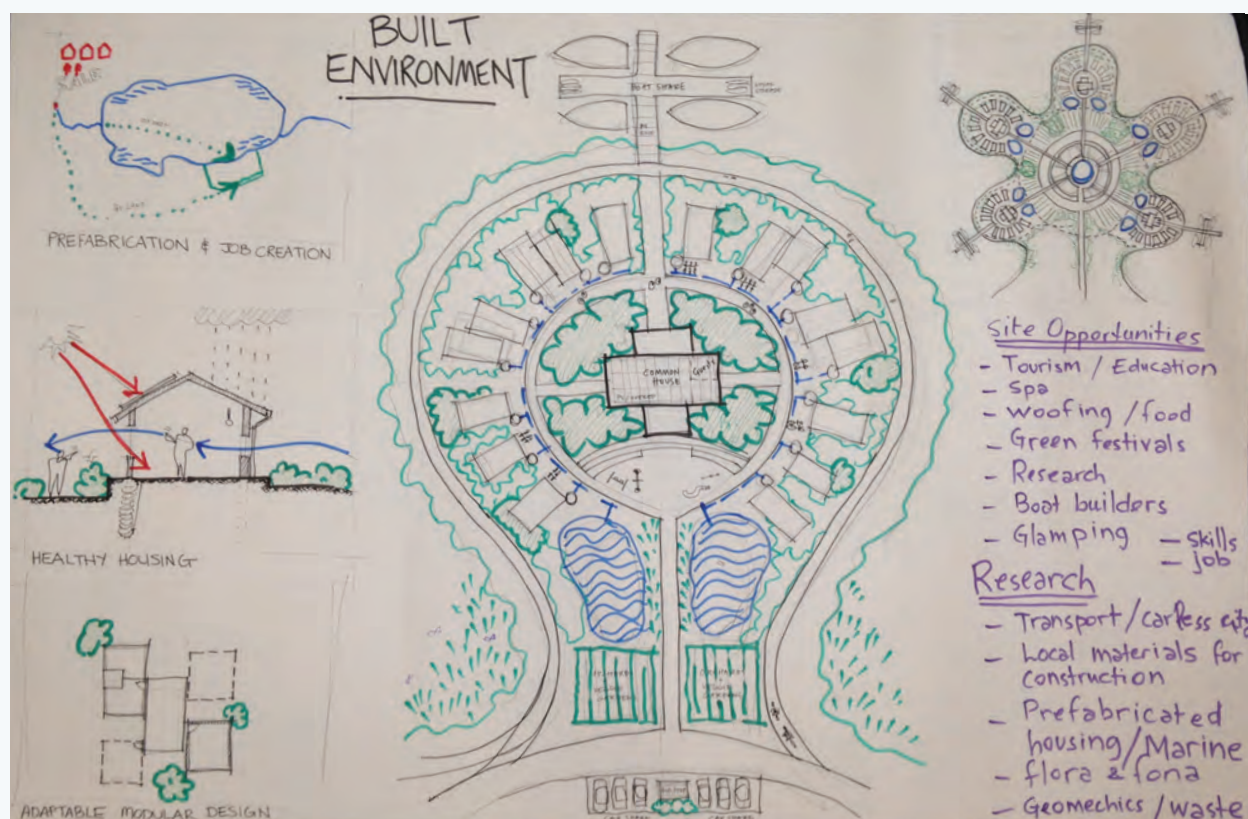 BUILT
ENVIRONMENT
BOAT SHARE
PREFABRICATION & JOB CREATION
HEALTHY HOUSING
ADAPTABLE MODULAR DESIGN
COMMON
HOUSE
Site Opportunities
- Tourism / Education
- Spa
- woofing / food
- Green festivals
- Research
- Boat builders
- Glamping - skills
- job
Research
- Transport / carless city
- Local materials for
construction
- Prefabricated
housing / Marine
- flora & fona
- Geomechics / waste